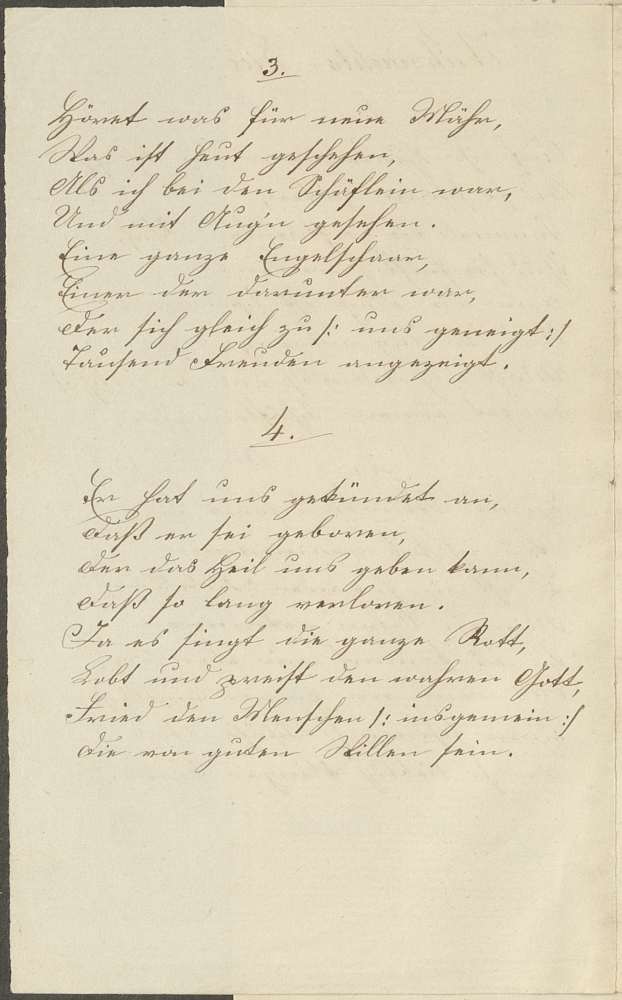 3.
Höret was für neue Mähr,
Was ist heut geschehen,
Als ich bei den Schäflein war,
Und mit Aug'n gesehen.
Eine ganze Engelschaar,
Einer der darunter war,
Der sich gleich zu /: uns geneigt :/
Tausend Freuden angezeigt.
4.
Er hat uns gekündet an,
Daß er sei geboren,
Der das Heil uns geben kann,
Daß so lang verloren.
Ja es singt die ganze Rott,
Lobt und preist den wahren Gott,
Fried den Menschen /: insgemein :/
Die von guten Willen sein.